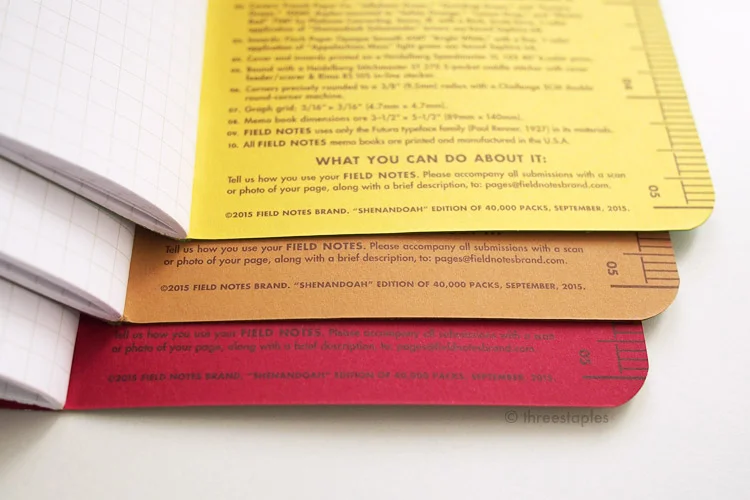 Covers: French Paper Co.
Innards: Finch Paper Opaque Smooth "Bright White," with a
application of "Appalachian light green soy-based
Cover and innards printed on a Heidelberg
05. Bound with a Heidelberg Stitchmaster ST 270 5-pocket saddle stitcher with cover
feeder/scorer & Rima RS 10S in-line stacker.
06. Corners precisely rounded to a 3/8" (9.5mm) radius with a Challenge SCM double
round-corner machine.
07. Graph grid: 3/16" × 3/16" (4.7mm × 4.7mm).
08. Memo book dimensions are 3-1/2" × 5-1/2" (89mm × 140mm).
09. FIELD NOTES uses only the Futura typeface family (Paul Renner, 1927) in its materials.
10. All FIELD NOTES memo books are printed and manufactured in the U.S.A.
WHAT YOU CAN DO ABOUT IT:
Tell us how you use your FIELD NOTES. Please accompany all submissions with a scan
or photo of your page, along with a brief description, to: pages@fieldnotesbrand.com.
©2015 FIELD NOTES BRAND. "SHENANDOAH" EDITION OF 40,000 PACKS, SEPTEMBER, 2015.
04
05
Tell us how you use your FIELD NOTES. Please accompany all submissions with a scan
or photo of your page, along with a brief description, to: pages@fieldnotesbrand.com.
©2015 FIELD NOTES BRAND. "SHENANDOAH" EDITION OF 40,000 PACKS, SEPTEMBER, 2015.
05
Tell us how you use your FIELD NOTES. Please accompany all submissions with a scan
or photo of your page, along with a brief description, to: pages@fieldnotesbrand.com.
©2015 FIELD NOTES BRAND. "SHENANDOAH" EDITION OF 40,000 PACKS, SEPTEMBER, 2015.
05
© threestaples